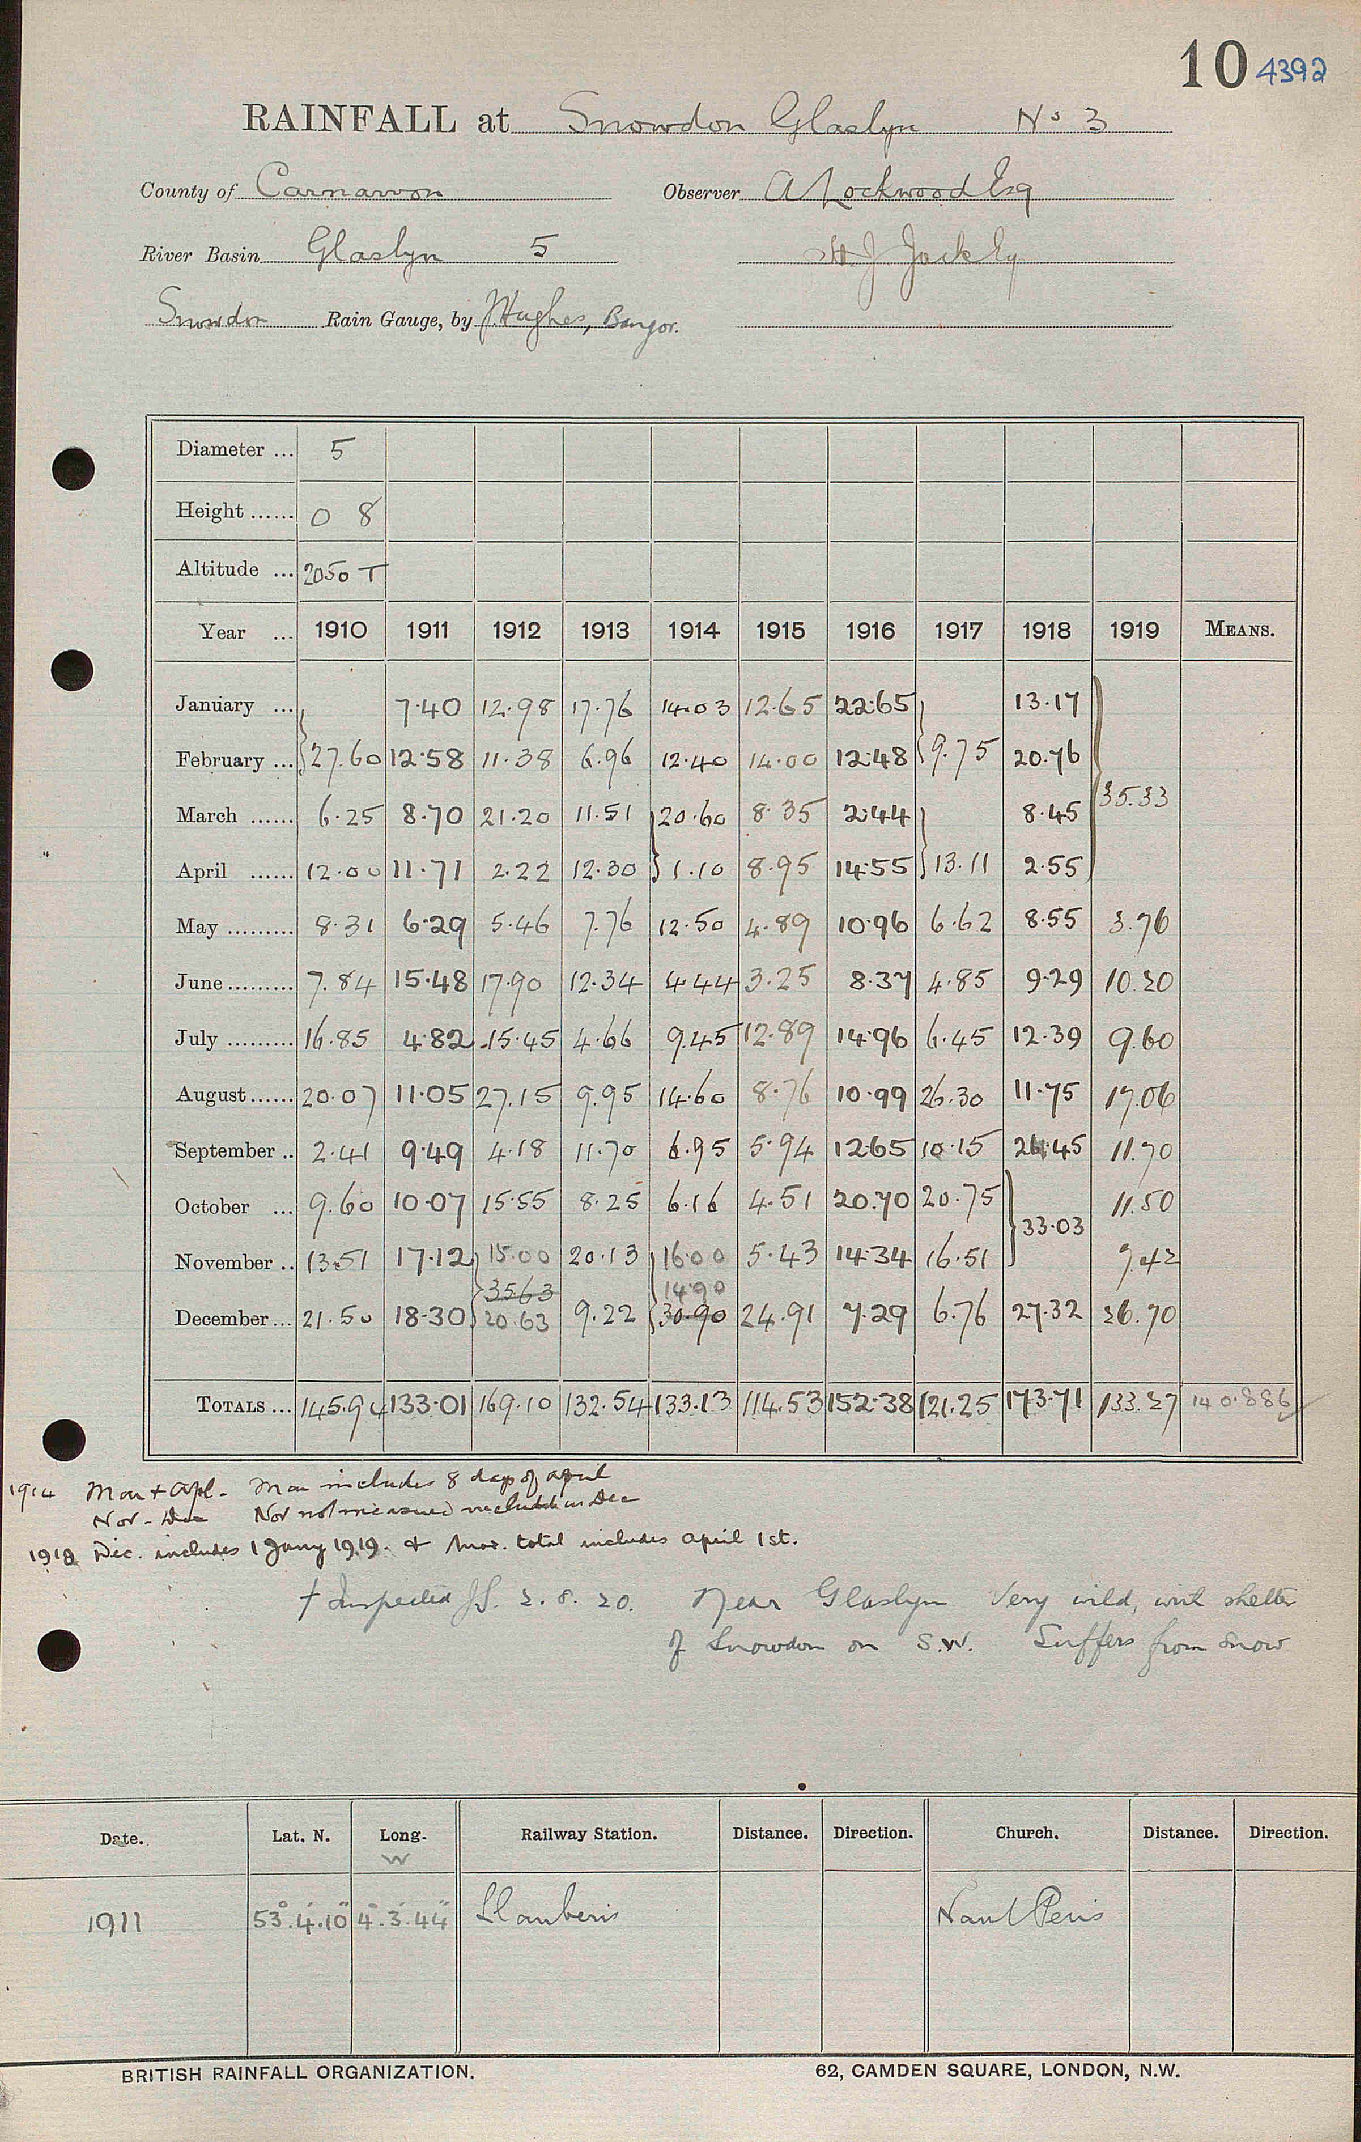 10 4392
RAINFALL at Snowdon Glaslyn No 3
County of Carnarvon Observer A Lockwood Esq
River Basin Glaslyn 5 H J Jack Esq
Snowdon Rain Gauge, by J Hughes, Bangor.
Diameter ... 5
Height ...... 0 8
Altitude ... 2050 T
Year ... 1910 1911 1912 1913 1914 1915 1916 1917 1918 1919 MEANS.
January ... 7·40 12·98 17·76 14·03 12·65 22·65 13·17
February ... 27·60 12·58 11·38 6·96 12·40 14·00 12·48 9·75 20·76
March ...... 6·25 8·70 21·20 11·51 20·60 8·35 2·44 8·45 35·33
April ...... 12·00 11·71 2·22 12·30 1·10 8·95 14·55 13·11 2·55
May ......... 8·31 6·29 5·46 7·76 12·50 4·89 10·96 6·62 8·55 3·76
June ......... 7·84 15·48 17·90 12·34 4·44 3·25 8·37 4·85 9·29 10·20
July ......... 16·85 4·82 15·45 4·66 9·45 12·89 14·96 6·45 12·39 9·60
August ...... 20·07 11·05 27·15 9·95 14·60 8·76 10·99 26·30 11·75 17·06
September .. 2·41 9·49 4·18 11·70 6·95 5·94 12·65 10·15 26·45 11·70
October ... 9·60 10·07 15·55 8·25 6·16 4·51 20·70 20·75 33·03 11·50
November .. 13·51 17·12 15·00 20·13 16·00 5·43 14·34 16·51 7·42
35·63 14·90
December ... 21·50 18·30 20·63 9·22 30·90 24·91 7·29 6·76 27·32 26·70
TOTALS ... 145·94 133·01 169·10 132·54 133·13 114·53 152·38 121·25 173·71 133·27 140·886
1914 Mar + Apl - Mar includes 8 days of April
Nov - Dec Nov not measured included in Dec
1918 Dec. includes 1 Jany 1919. & Mar. total includes April 1st.
† Inspected 2.8.20. Near Glaslyn Very wild, with shelter
of Snowdon on S.W. Suffers from snow
Date. Lat. N. Long. W Railway Station. Distance. Direction. Church. Distance. Direction.
1911 53°.4'.10" 4°.3'.44" Llanberis Nant Peris
BRITISH RAINFALL ORGANIZATION. 62, CAMDEN SQUARE, LONDON, N.W.